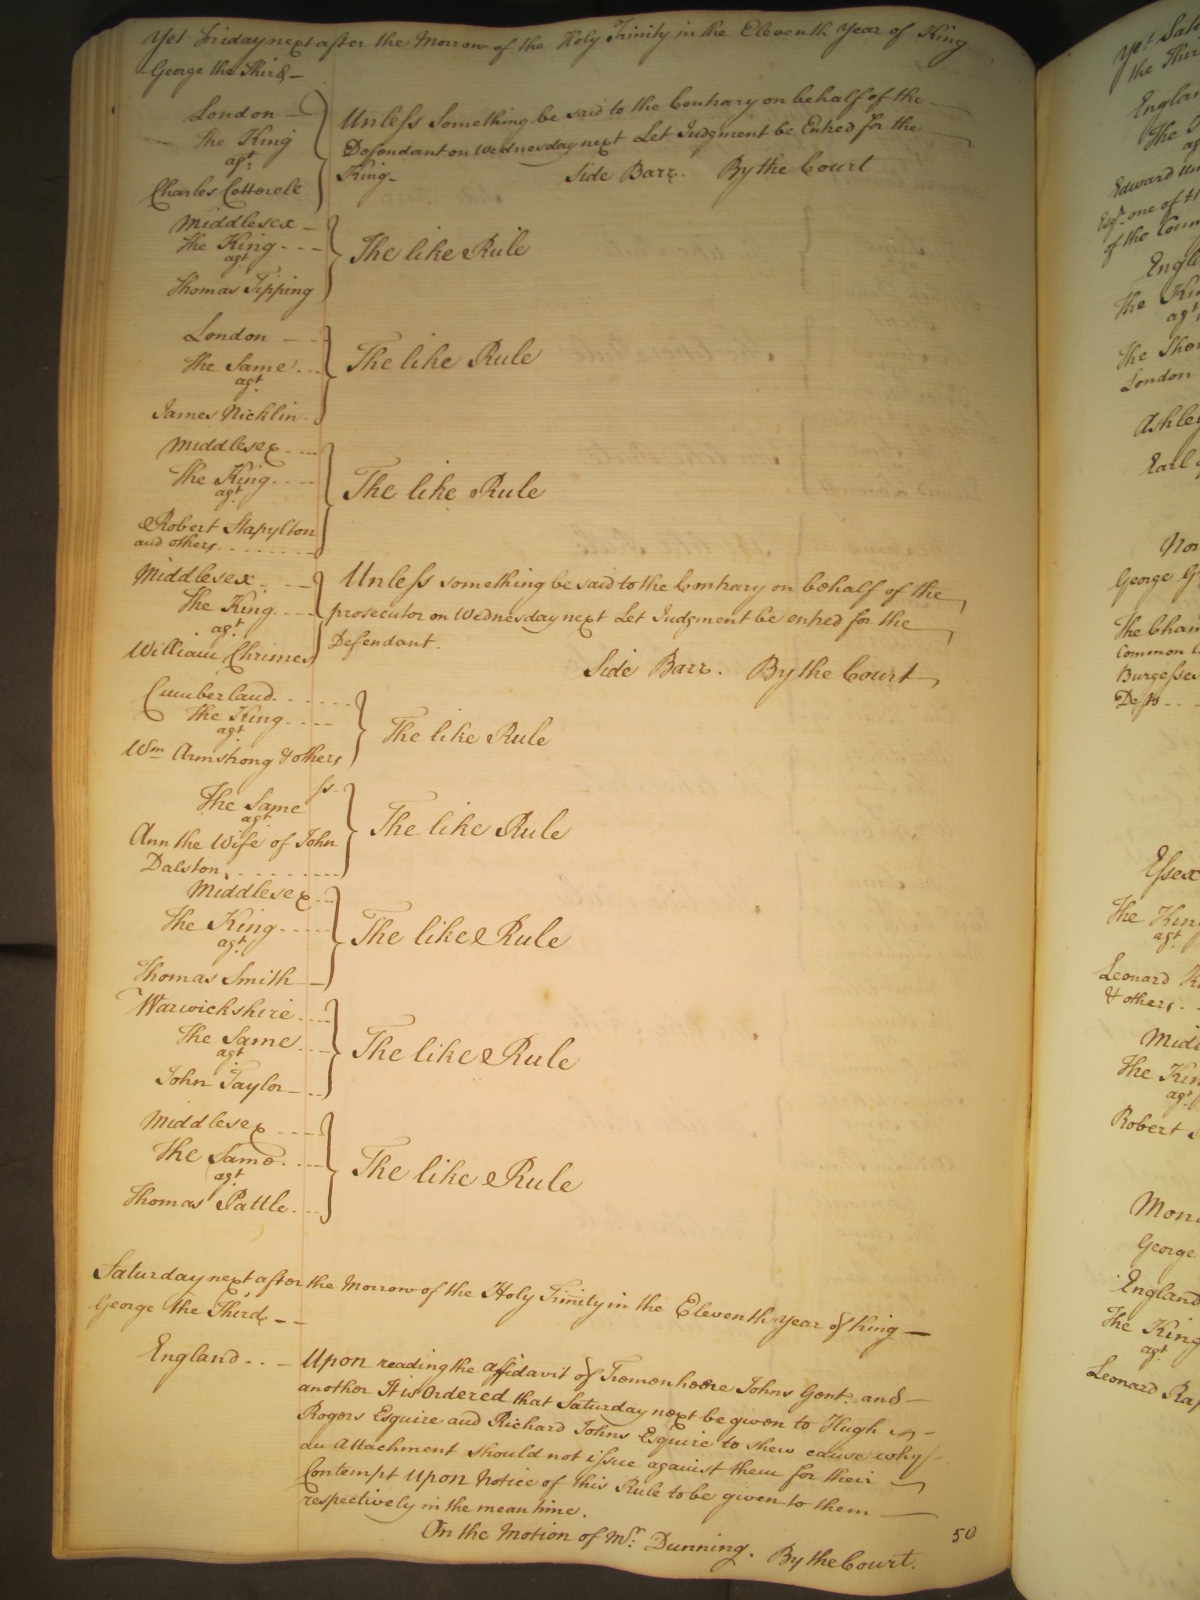 Yet Friday next after the Morrow of the Holy Trinity in the Eleventh Year of King
George the Third
London
The King
agt.
Charles Cottorele
Unless Something be said to the Contrary on behalf of the
Defendant on Wednesday next Let Judgment be Entred for the
King
Side Barr. By the Court
Middlesex
The King
agt.
Thomas Tipping
The like Rule
London
The Same
agt
James Nicklin
The like Rule
Middlesex
The King
agt
Robert Stapylton
and others
The like Rule
Middlesex
The King
agt
William Chrimes
Unless something be said to the Contrary on behalf of the
prosecutor on Wednesday next Let Judgment be entred for the
Defendant.
Side Barr. By the Court
Cumberland
The King
agt
Wm Armstrong & others
The like Rule
ss.
The Same
agt
Ann the Wife of John
Dalston
The like Rule
Middlesex
The King
agt.
Thomas Smith
The like Rule
Warwickshire
The Same
agt
John Taylor
The like Rule
Middlesex
The Same
agt
Thomas Pattle
The like Rule
Saturday next after the Morrow of the Holy Trinity in the Eleventh Year of King
George the Third
England
Upon reading the affidavit of Tremenheere Johns Gent. and
another It is Ordered that Saturday next be given to Hugh
Rogers Esquire and Richard Johns Esquire to shew cause why
an Attachment should not issue against them for their
Contempt Upon Notice of this Rule to be given to them
respectively in the mean time.
On the Motion of Mr. Dunning. By the Court.
50
the Thir
The King
agt
Edward
Esqr. one of th
of the Coun
Engl
The Ki
agt
The Sho
London
Ashley
Earl
Nor
George G
The Cham
Common
Burgesses
Essex
The King
agt
Leonard
& others
Midd
The Kin
agt
Robert
Mon
George
England
The King
agt
Leonard Ra